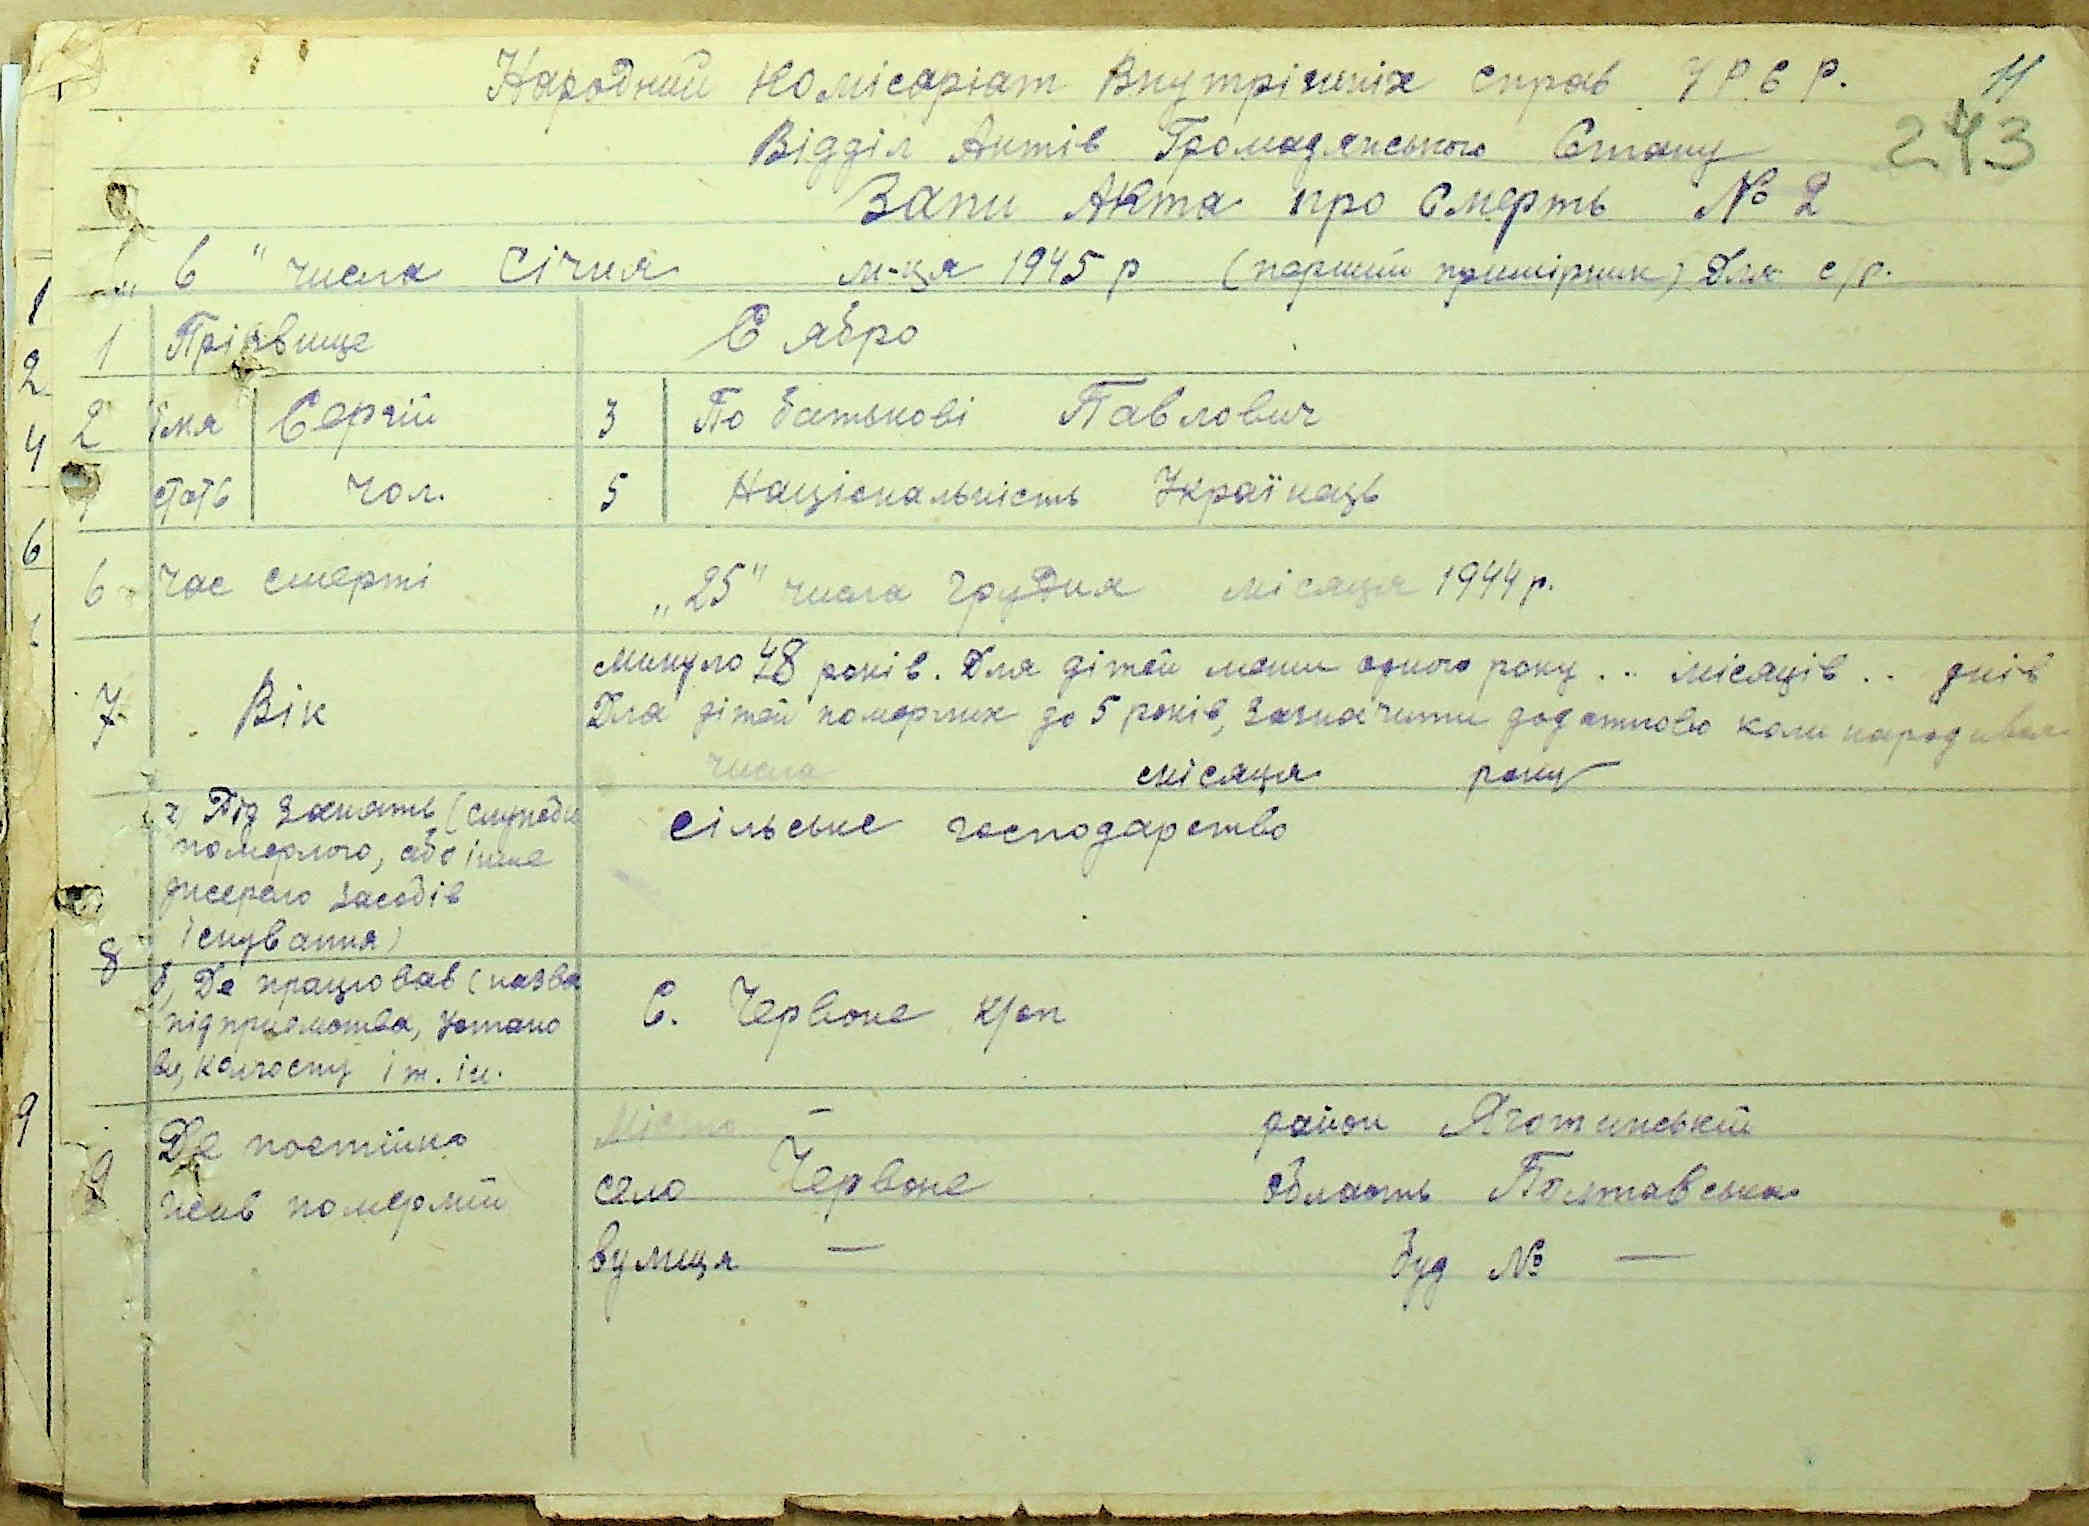 Народний Комісаріат Внутрішніх Справ УРСР. 11
Відділ Актів Громадянського Стану 243
Запи Акта про Смерть № 2
„ 6 " числа Січня м-ця 1945 р (перший примірник) Для с/р.
1 Прізвище Сябро
2 Імя Сергій 3 По батькові Павлович
стать чол. 5 Національність Українець
6 Час смерті „25" числа грудня місяця 1944 р.
7 Вік минуло 48 років. Для дітей менш одного року .. місяців .. днів
Для дітей померлих до 5 років, зазначити додатково коли народився
числа місяця року
Під занять (служби сільське господарство
померлого, або інше
джерело засобів
існування)
8 б, Де працював (назва С. Червоне к/сп
підприємства, устано
ви, колгоспу і т. ін.
9 Де постійно Місто — район Яготинський
жив померлий село Червоне область Полтавська
вулиця — буд № —
1
2
4
6
9